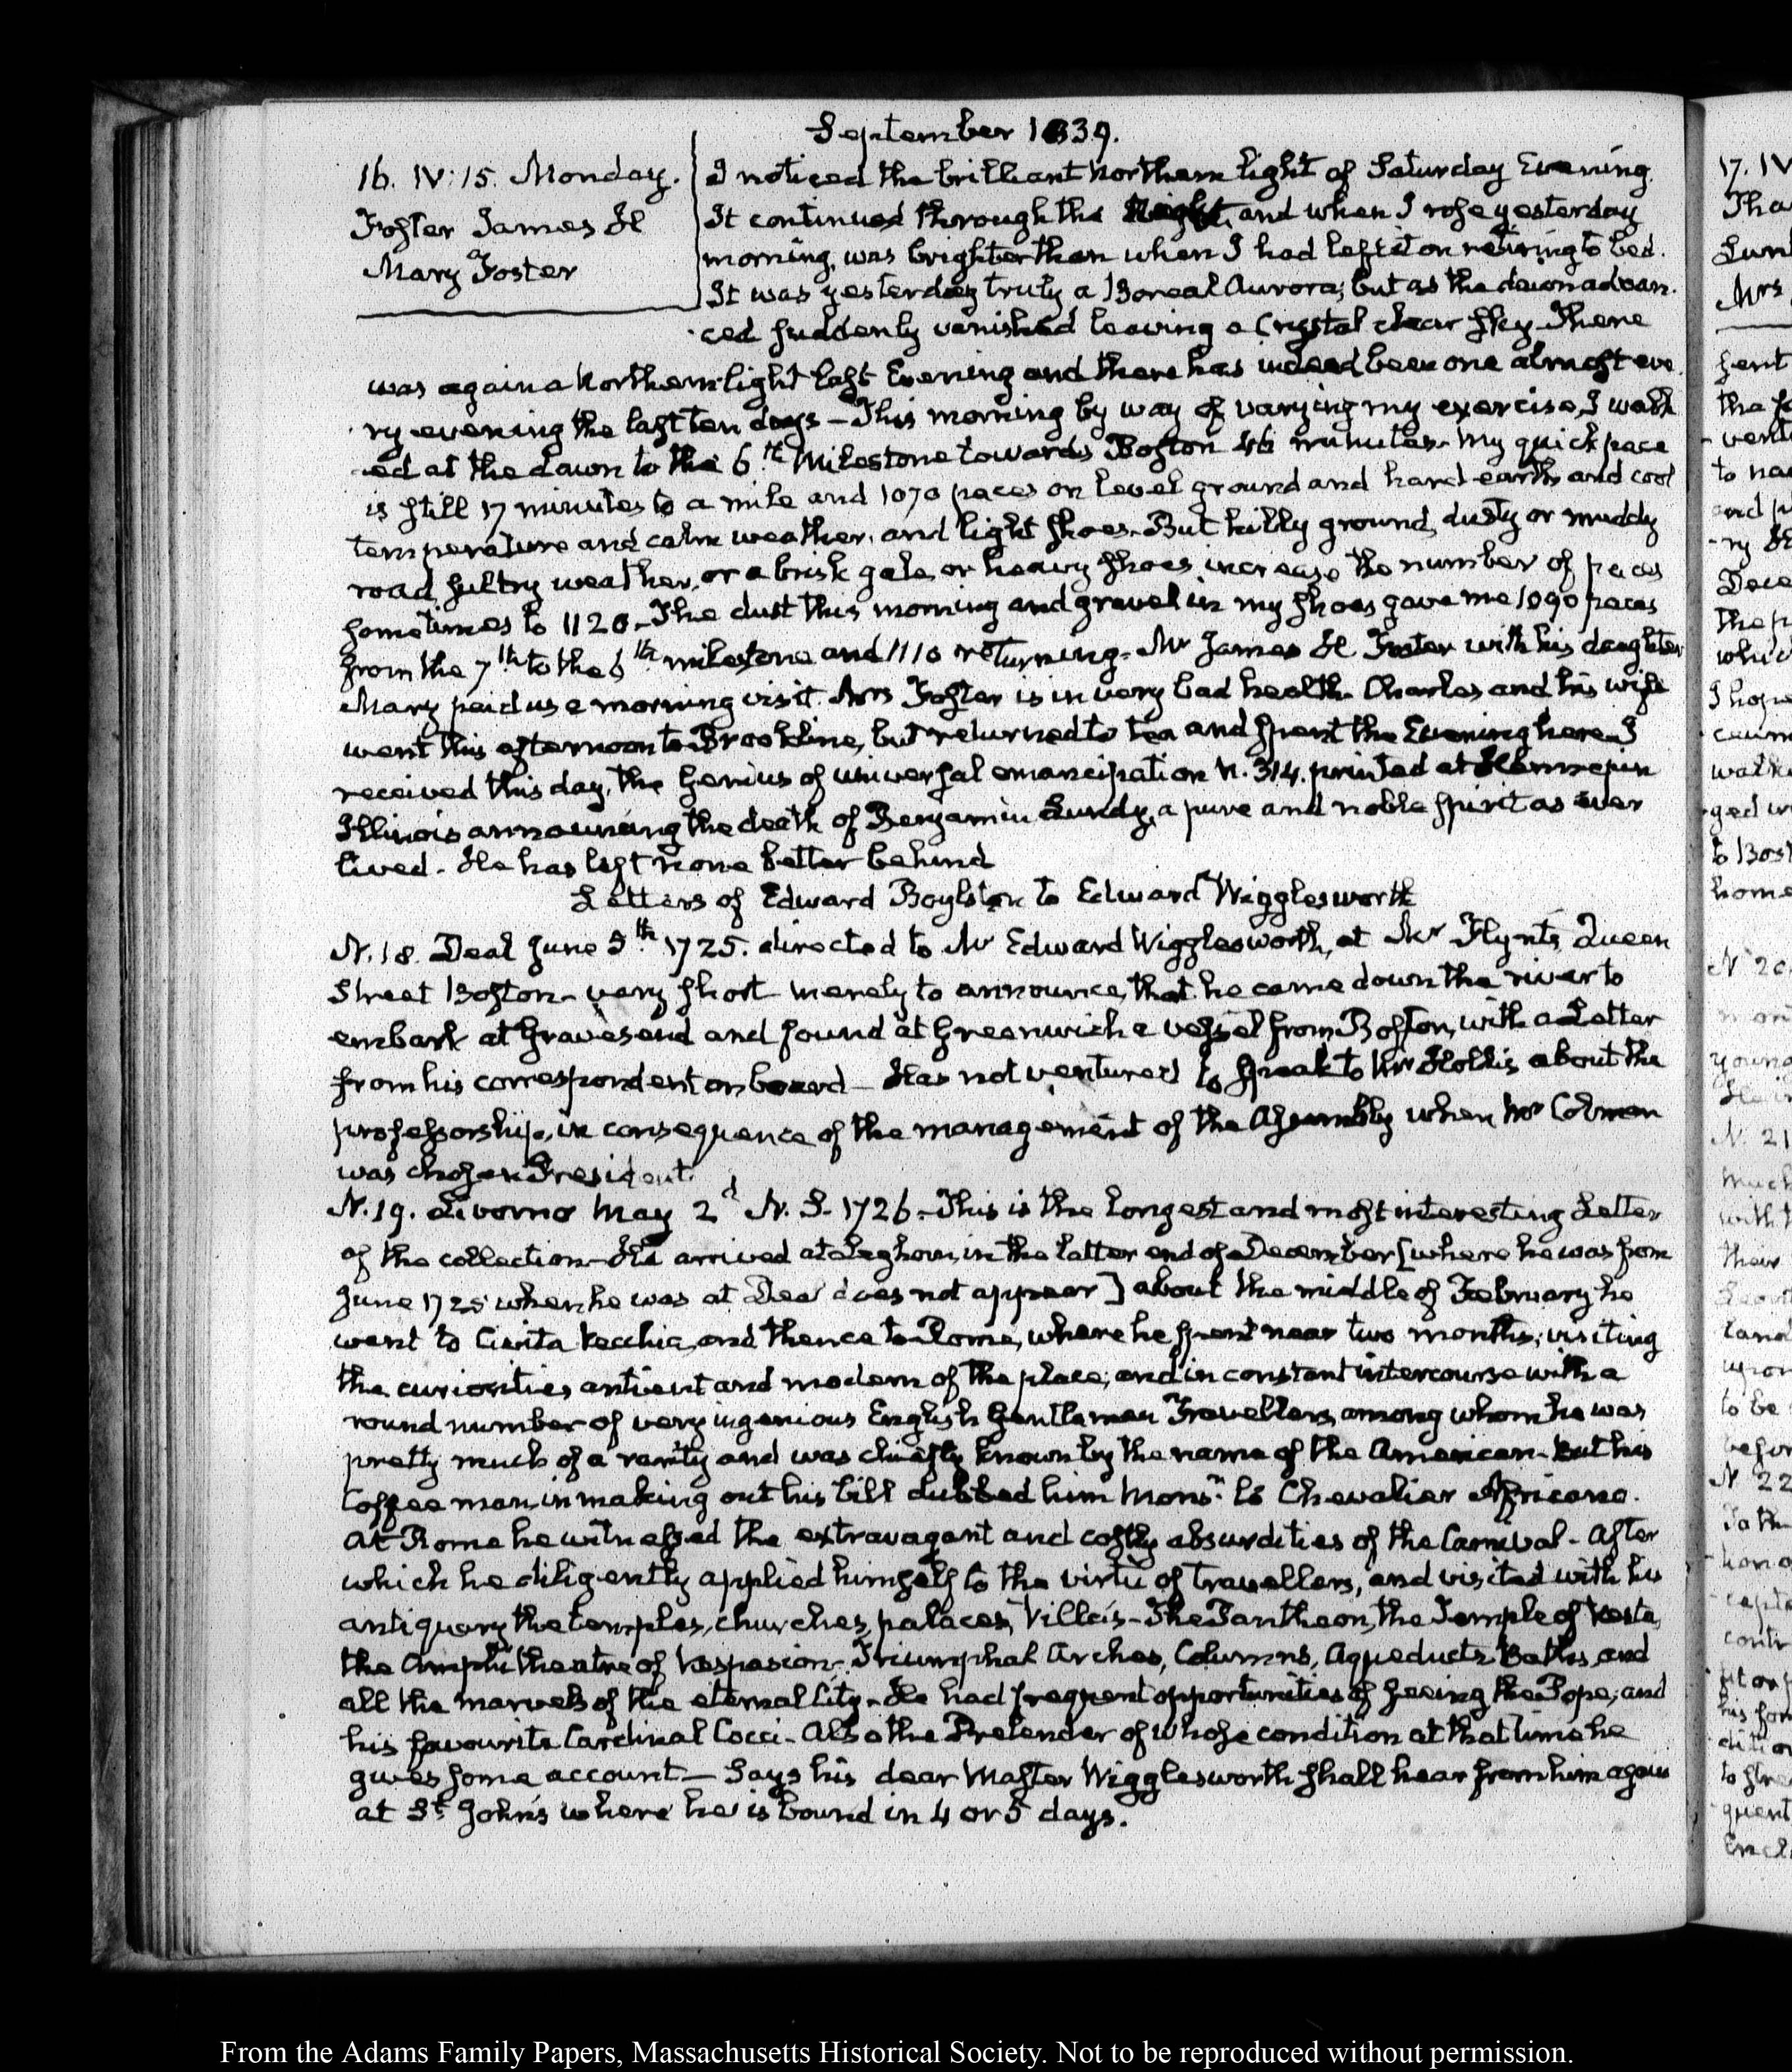 September 1839.
16. IV:15. Monday.
Foster James H
Mary Foster
I noticed the brilliant Northern light of Saturday Evening.
It continued through the Night, and when I rose yesterday
morning, was brighter than when I had left it on retiring to bed.
It was yesterday truly a Boreal Aurora; but as the dawn advan-
-ced suddenly vanished leaving a Crystal clear sky. There
was again a Northern light last Evening and there has indeed been one almost eve-
-ry evening the last ten days – This morning by way of varying my exercise, I walk-
-ed at the dawn to the 6th Milestone towards Boston 46 minutes. My quick pace
is still 17 minutes to a mile and 1070 paces on level ground and hard earth and cool
temperature and calm weather, and light shoes. But hilly ground, dusty or muddy
road, sultry weather, or a brisk gale, or heavy shoes, increase the number of paces
sometimes to 1120. The dust this morning and gravel in my shoes gave me 1090 paces
from the 7th to the 6th milestone and 1110 returning. Mr James H Foster with his daughter
Mary paid us a morning visit. Mrs Foster is in very bad health. Charles and his wife
went this afternoon to Brookline, but returned to tea and spent the Evening here. I
received this day, the Genius of universal emancipation N. 314. printed at Hennepin
Illinois announcing the death of Benjamin Lundy, a pure and noble spirit as ever
lived. He has left none better behind
Letters of Edward Boylston to Edward Wigglesworth
N. 18. Deal June 5th 1725. directed to Mr Edward Wigglesworth, at Mr Flynts, Queen
Street Boston – very short merely to announce, that he came down the river to
embark at Gravesend and found at Greenwich a vessel from Boston, with a Letter
from his correspondent on board – Has not ventured to speak to Mr Hollis about the
professorship, in consequence of the management of the Assembly when Mr Colman
was chosen President.
N. 19. Livorno May 2d N. S. 1726. This is the longest and most interesting Letter
of the collection – He arrived at Leghorn, in the latter end of December [where he was from
June 1725 when he was at Deal does not appear] about the middle of February he
went to Civita Vecchia, and thence to Rome, where he spent near two months; visiting
the curiosities antient and modern of the place; and in constant intercourse with a
round number of very ingenious English Gentlemen Travellers, among whom he was
pretty much of a rarity and was chiefly known by the name of the American. But his
Coffee man, in making out his bill dubbed him Monsr. le Chevalier Africano.
At Rome he witnessed the extravagant and costly absurdities of the Carnival. After
which he diligently applied himself to the virtù of travellers, and visited with his
antiquary the temples, churches, palaces, Villa's – The Pantheon, the Temple of Vesta,
the Amphitheatre of Vespasian. Triumphal Arches, Columns, Aqueducts Baths, and
all the marvels of the eternal City. He had frequent opportunities of seeing the Pope; and
his favourite Cardinal Cocci. Also the Pretender of whose condition at that time he
gives some account – Says his dear Master Wigglesworth shall hear from him again
at St. John's where he is bound in 4 or 5 days.
From the Adams Family Papers, Massachusetts Historical Society. Not to be reproduced without permission.